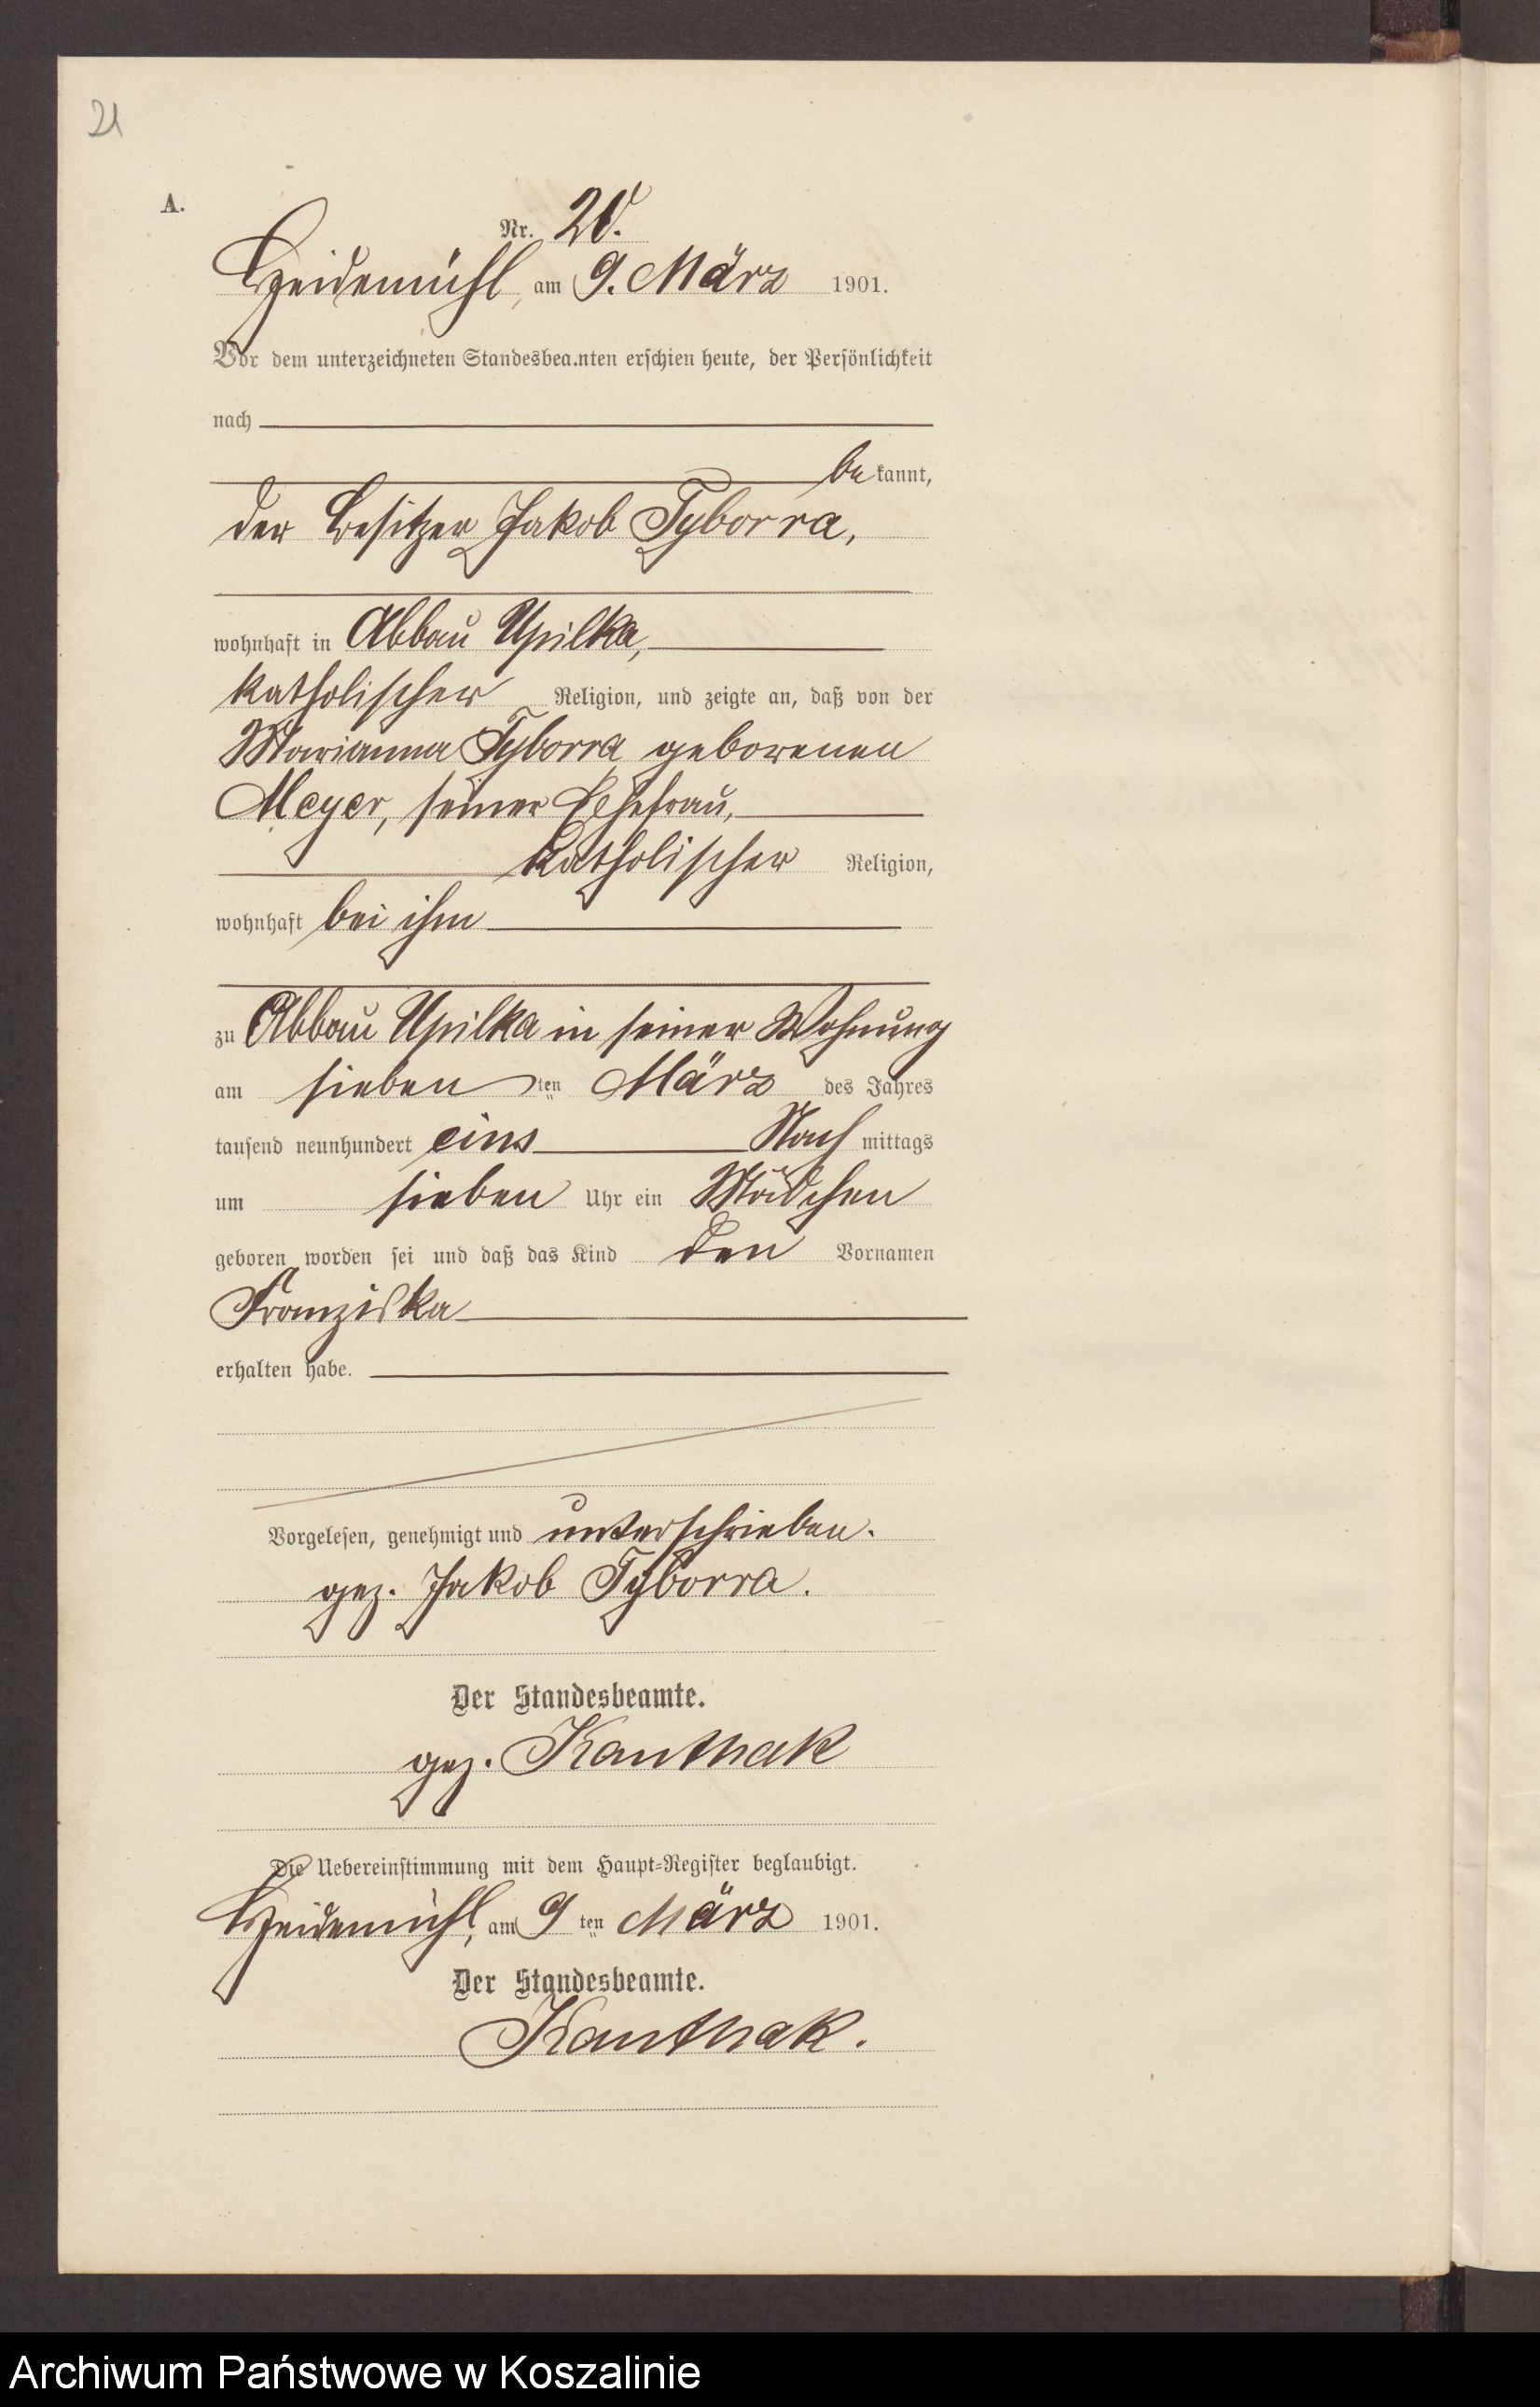 21
A.
Nr. 20.
Heidemühl, am 9. März 1901.
Vor dem unterzeichneten Standesbeamten erschien heute, der Persönlichkeit
nach
be kannt,
der Besitzer Jakob Tyborra,
wohnhaft in Abbau Upilka,
katholischer Religion, und zeigte an, daß von der
Marianna Tyborra geborenen
Meyer, seiner Ehefrau,
katholischer Religion,
wohnhaft bei ihm
zu Abbau Upilka in seiner Wohnung
am sieben ten März des Jahres
tausend neunhundert eins Nach mittags
um sieben Uhr ein Mädchen
geboren worden sei und daß das Kind den Vornamen
Franziska
erhalten habe.
Vorgelesen, genehmigt und unterschrieben.
gez. Jakob Tyborra.
Der Standesbeamte.
gez. Kanthak
Die Uebereinstimmung mit dem Haupt-Register beglaubigt.
Heidemühl, am 9 ten März 1901.
Der Standesbeamte.
Kanthak.
Archiwum Państwowe w Koszalinie